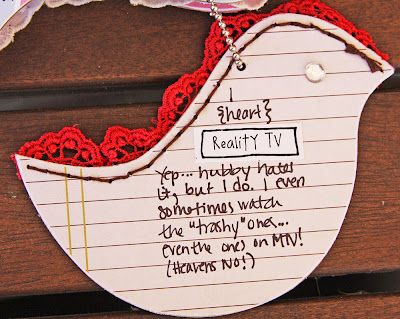 I
{heart}
Reality TV
Yep... hubby hates
it, but I do. I even
sometimes watch
the "trashy" ones...
even the ones on MTV!
(Heavens No!)